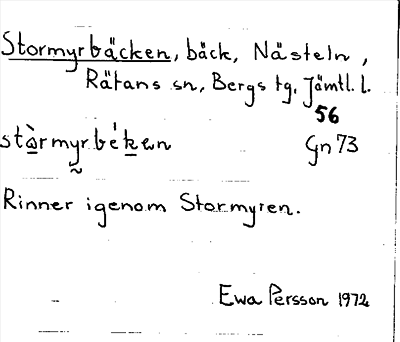 Stormyrbäcken, bäck, Nästeln,
Rätans sn, Bergs tg, Jämtl. l.
56
stòrmyrbéken Gn 73
Rinner igenom Stormyren.
Ewa Persson 1972